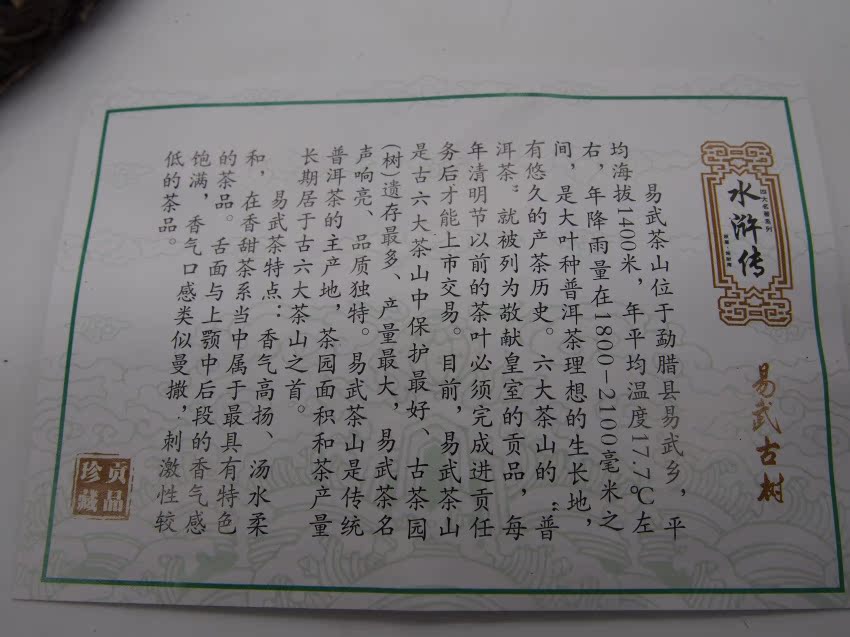 四大名著系列
水浒传
易武古树
易武茶山位于勐腊县易武乡，平
均海拔1400米，年平均温度17.7℃左
右，年降雨量在1800-2100毫米之
间，是大叶种普洱茶理想的生长地，
有悠久的产茶历史。六大茶山的“普
洱茶”就被列为敬献皇室的贡品，每
年清明节以前的茶叶必须完成进贡任
务后才能上市交易。目前，易武茶山
是古六大茶山中保护最好、古茶园
(树)遗存最多、产量最大，易武茶名
声响亮、品质独特。易武茶山是传统
普洱茶的主产地，茶园面积和茶产量
长期居于古六大茶山之首。
易武茶特点：香气高扬、汤水柔
和，在香甜茶系当中属于最具有特色
的茶品。舌面与上颚中后段的香气感
饱满，香气口感类似曼撒，刺激性较
低的茶品。
贡品
珍藏